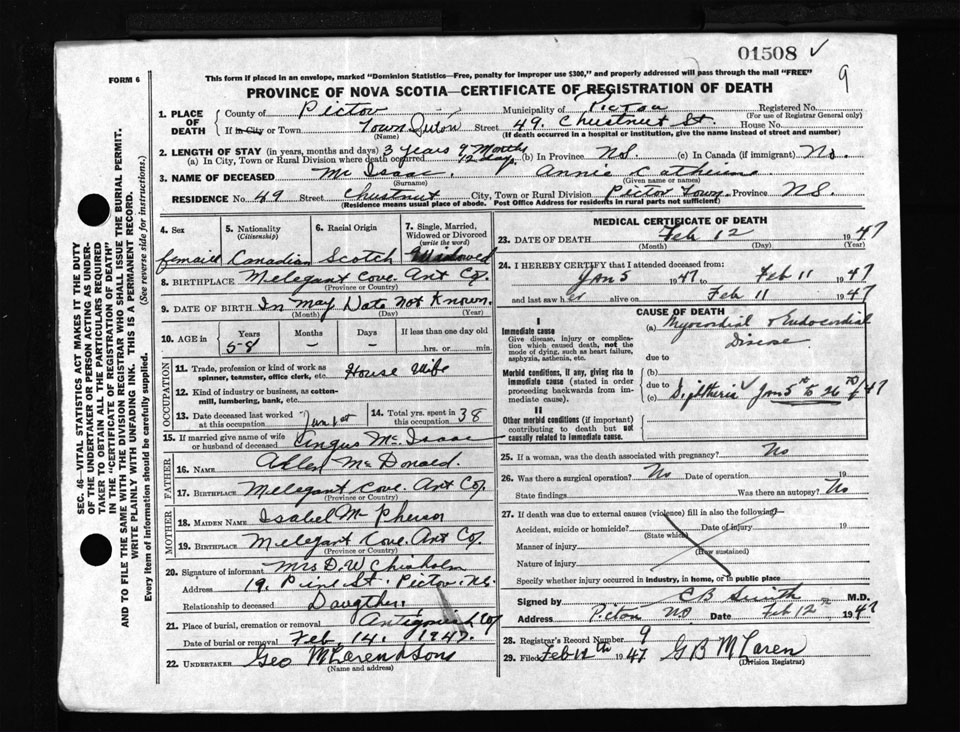 01508 ✓
9
FORM 6
This form if placed in an envelope, marked "Dominion Statistics—Free, penalty for improper use $300," and properly addressed will pass through the mail "FREE"
PROVINCE OF NOVA SCOTIA—CERTIFICATE OF REGISTRATION OF DEATH
1. PLACE OF DEATH
County of Pictou Municipality of Pictou Registered No.
(For use of Registrar General only)
If in City or Town Town Street 49. Chestnut St. House No.
(Name) (If death occurred in a hospital or institution, give the name instead of street and number)
2. LENGTH OF STAY (in years, months and days) 3 years 9 Months 12 days.
(a) In City, Town or Rural Division where death occurred (b) In Province NS. (c) In Canada (if immigrant) No.
3. NAME OF DECEASED Mc Isaac. Annie Catherine
(Surname) (Given name or names)
RESIDENCE No. 49 Street Chestnut City, Town or Rural Division Pictou Town Province NS.
(Residence means usual place of abode. Post Office Address for residents in rural parts not sufficient)
4. Sex
female
5. Nationality
(Citizenship)
Canadian
6. Racial Origin
Scotch
7. Single, Married, Widowed or Divorced
(write the word)
Widowed
8. BIRTHPLACE Melegant Cove. Ant Co.
(Province or Country)
9. DATE OF BIRTH In May Date Not Known.
(Month) (Day) (Year)
10. AGE in Years Months Days If less than one day old
58 — — hrs. or min.
OCCUPATION
11. Trade, profession or kind of work as
spinner, teamster, office clerk, etc. House Wife
12. Kind of industry or business, as cotton-
mill, lumbering, bank, etc.
13. Date deceased last worked
at this occupation Jan 1st
14. Total yrs. spent in
this occupation 38
15. If married give name of wife
or husband of deceased Angus Mc Isaac
FATHER
16. NAME Allen McDonald.
17. BIRTHPLACE Melegant Cove. Ant Co.
(Province or Country)
MOTHER
18. MAIDEN NAME Isabel McPherson
19. BIRTHPLACE Melegant Cove. Ant Co.
(Province or Country)
20. Signature of informant Mrs D. W Chisholm
Address 19. Pine St. Pictou. N.S.
Relationship to deceased Daugther.
21. Place of burial, cremation or removal Antigonish Co
Date of burial or removal Feb. 14. 1947.
22. UNDERTAKER Geo McLaren & Sons
(Name and address)
MEDICAL CERTIFICATE OF DEATH
23. DATE OF DEATH Feb 12 1947
(Month) (Day) (Year)
24. I HEREBY CERTIFY that I attended deceased from:
Jan 5 1947 to Feb 11 1947
and last saw her alive on Feb 11 1947
CAUSE OF DEATH
I
Immediate cause
Give disease, injury or complica-
tion which caused death, not the
mode of dying, such as heart failure,
asphyxia, asthenia, etc.
(a) Myocordial & Endocordial
Disease
due to
Morbid conditions, if any, giving rise to
immediate cause (stated in order
proceeding backwards from im-
mediate cause).
(b)
due to
(c) Diphtheria ✓ Jan 5th to 26th /47
II
Other morbid conditions (if important)
contributing to death but not
causally related to immediate cause.
25. If a woman, was the death associated with pregnancy? No
26. Was there a surgical operation? No Date of operation 19
State findings Was there an autopsy? No
27. If death was due to external causes (violence) fill in also the following—
Accident, suicide or homicide? Date of injury 19
(State which)
Manner of injury
(How sustained)
Nature of injury
Specify whether injury occurred in industry, in home, or in public place
Signed by C B Smith M.D.
Address Pictou NS Date Feb 12th 1947
28. Registrar's Record Number 9
29. Filed Feb 12th 1947 G B McLaren
(Division Registrar)
SEC. 46—VITAL STATISTICS ACT MAKES IT THE DUTY
OF THE UNDERTAKER OR PERSON ACTING AS UNDER-
TAKER TO OBTAIN ALL THE PARTICULARS REQUIRED
IN THE "CERTIFICATE OF REGISTRATION OF DEATH"
AND TO FILE THE SAME WITH THE DIVISION REGISTRAR WHO SHALL ISSUE THE BURIAL PERMIT.
WRITE PLAINLY WITH UNFADING INK. THIS IS A PERMANENT RECORD.
Every item of information should be carefully supplied. (See reverse side for instructions.)